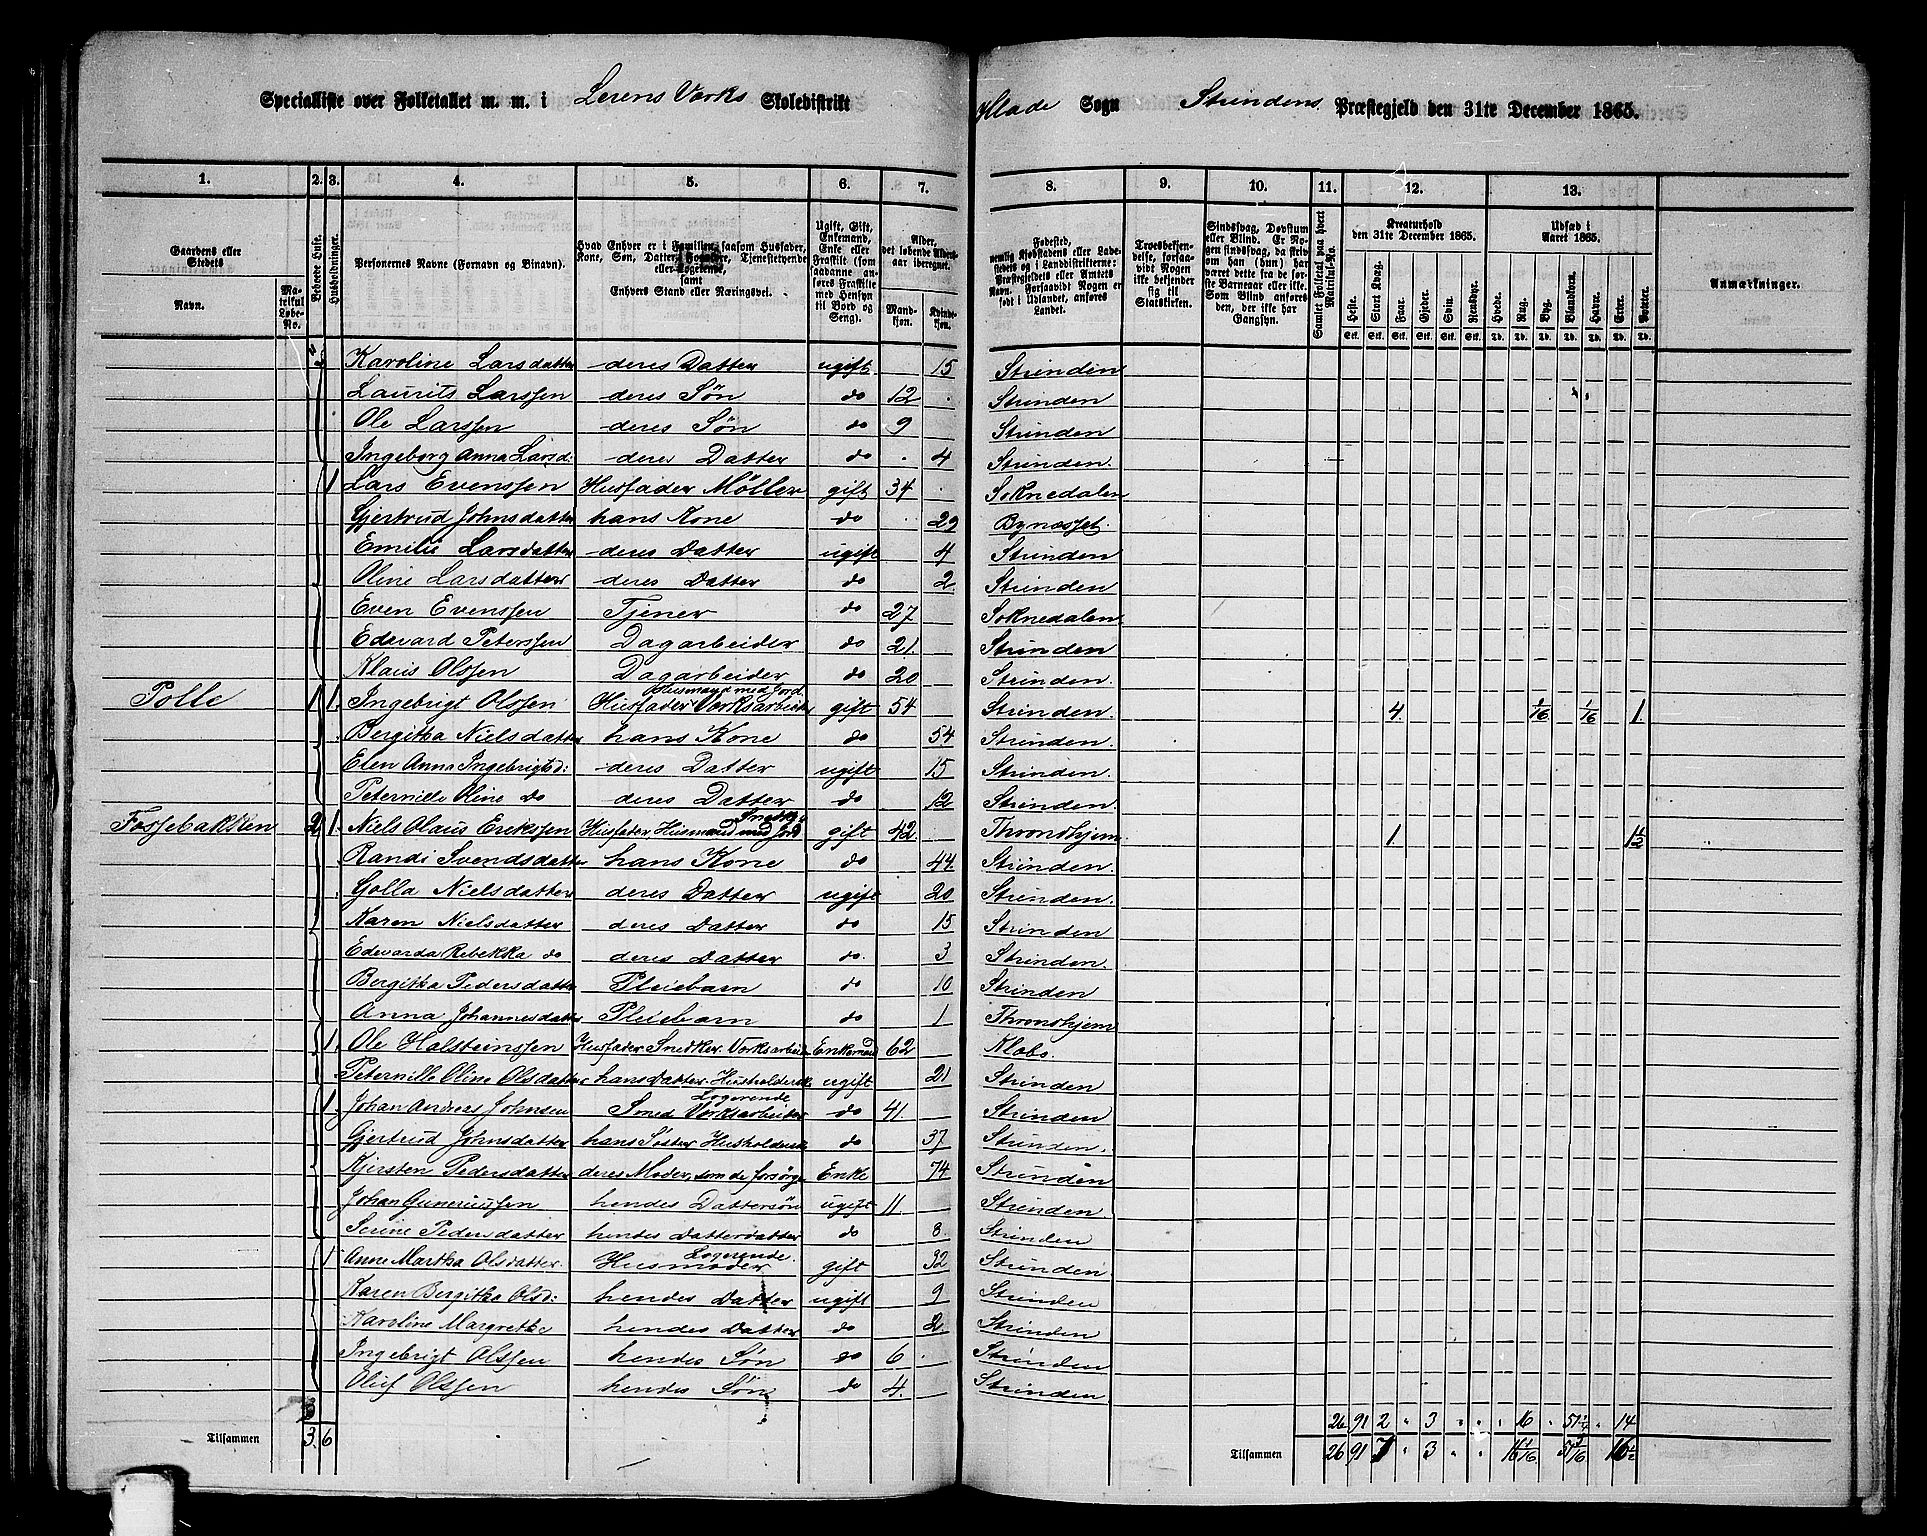 Specialliste over Folketallet m. m. i Lerens Værks Skoledistrikt Hlade Sogn Strindens Præstegjeld den 31te December 1865.
1. 2. 3. 4. 5. 6. 7. 8. 9. 10. 11. 12. 13.
Gaardens eller Stedets
Navn.
Matrikul Løbe-No.
Beboede Huse.
Husholdninger.
Personernes Navne (Fornavn og Binavn).
Hvad Enhver er i Familien, saasom Husfader, Kone, Søn, Datter, Forældre, Tjenestetyende eller Logerende, samt Enhvers Stand eller Næringsvei.
Ugift, Gift, Enkemand, Enke eller Fraskilt (som saadanne anføres Fraskilte med Hensyn til Bord og Seng).
Alder, det løbende Alders-aar iberegnet.
Mandkjøn. Kvindekjøn.
Fødested, nemlig Kjøbstadens eller Ladestedets og i Landdistrikterne: Præstegjeldets eller Amtets Navn. Forsaavidt Nogen er født i Udlandet, anføres Landet.
Troesbekjendelse, forsaavidt Nogen ikke bekjender sig til Statskirken.
Sindssvag, Døvstum eller Blind. Er Nogen sindssvag, da skrives om han (hun) har været dette fra de første Barneaar eller ikke. Som Blind anføres den, der ikke har Gangsyn.
Samlet Folketal paa hvert Matrikul-No.
Kreaturhold den 31te December 1865.
Heste. Stort Kvæg. Faar. Gjeder. Svin. Rensdyr.
Udsæd i Aaret 1865.
Hvede. Rug. Byg. Blandkorn. Havre. Erter. Poteter.
Anmærkninger.
Karoline Larsdatter deres Datter ugift. 15 Strinden
Laurits Larssen deres Søn do 12 Strinden
Ole Larssen deres Søn do 9 Strinden
Ingeborg Anna Larsd: deres Datter do 4 Strinden.
1. Lars Evenssen Husfader Møller gift 34 Soknedalen
Gjertrud Johnsdatter hans Kone do 29 Bynæsset.
Emilie Larsdatter deres Datter ugift 4 Strinden
Oline Larsdatter deres Datter do 2 Strinden
Even Evenssen Tjener do 27 Soknedalen
Edevard Peterssen Dagarbeider do 21. Strinden
Klaus Olssen Dagarbeider do 20 Strinden.
Polle 1 1. Ingebrigt Olssen Husfader Husmand med Jord. Værksarbeider gift 54 Strinden. 4. 1/16 1/16 1.
Bergitha Nielsdatter hans Kone do 54 Strinden.
Elen Anna Ingebrigtsd: deres Datter ugift 15 Strinden.
Peternille Oline do deres Datter do 12 Strinden.
Fossebakken 2 1. Niels Olaus Erikssen Husfader Husmand med Jord Snedker gift 42 Throndhjem. 1. 1 1/2
Randi Svendsdatter hans Kone do 44 Strinden.
Golla Nielsdatter deres Datter ugift 20 Strinden.
Karen Nielsdatter deres Datter do 15 Strinden
Edevarda Rebekka do deres Datter do. 3 Strinden.
Bergitha Pedersdatter Pleiebarn do 10 Strinden
Anna Johannesdatter Pleiebarn do 1 Throndhjem
1. Ole Holsteinssen Husfader Snedker. Værksarbeider Enkemand 62 Klæbo.
Peternille Oline Olsdatter hans Datter. Husholderske ugift 21 Strinden
1. Johan Andreas Johnsen Logerende Smed Værksarbeider do 41. Strinden
Gjertrud Johnsdatter hans Søster Husholderske do 37 Strinden.
Kjersten Pedersdatter deres Moder, som de forsørge Enke 74 Strinden
Johan Gunerius­sen hendes Dattersøn ugift 11 Strinden
Serine Pedersdatter hendes Datterdatter do 8. Strinden
1 Anne Martha Olsdatter. Logerende. Husmoder gift 32 Strinden
Karen Bergitha Olsd: hendes Datter ugift 9 Strinden
Karoline Margrethe hendes Datter do 2 Strinden
Ingebrigt Olssen hendes Søn do 6 Strinden
Oluf Olssen hendes Søn do 4. Strinden
26 91 2 " 3 " " " 16 " 51 1/2 " 14
Tilsammen 3. 6 Tilsammen 26 91 7 " 3 " " 16 1/16 51 9/16 16 1/2